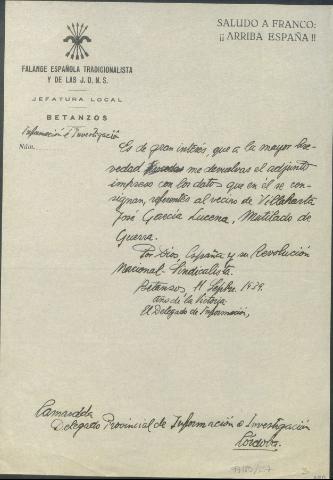 SALUDO A FRANCO:
¡¡ARRIBA ESPAÑA!!
FALANGE ESPAÑOLA TRADICIONALISTA
Y DE LAS J. O. N. S.
JEFATURA LOCAL
BETANZOS
Información e Investigació
Núm.
Es de gran interés, que a la mayor bre-
vedad me devuelvas el adjunto
impreso con los datos que en él se con-
signan, referentes al vecino de Villaharta
José García Lucena, Mutilado de
Guerra.
Por Dios, España y su Revolución
Nacional-Sindicalista.
Betanzos 11 Septbre. 1939.
Año de la Victoria.
El Delegado de Información,
Camarada
Delegado Provincial de Información e Investigación
Córdoba.